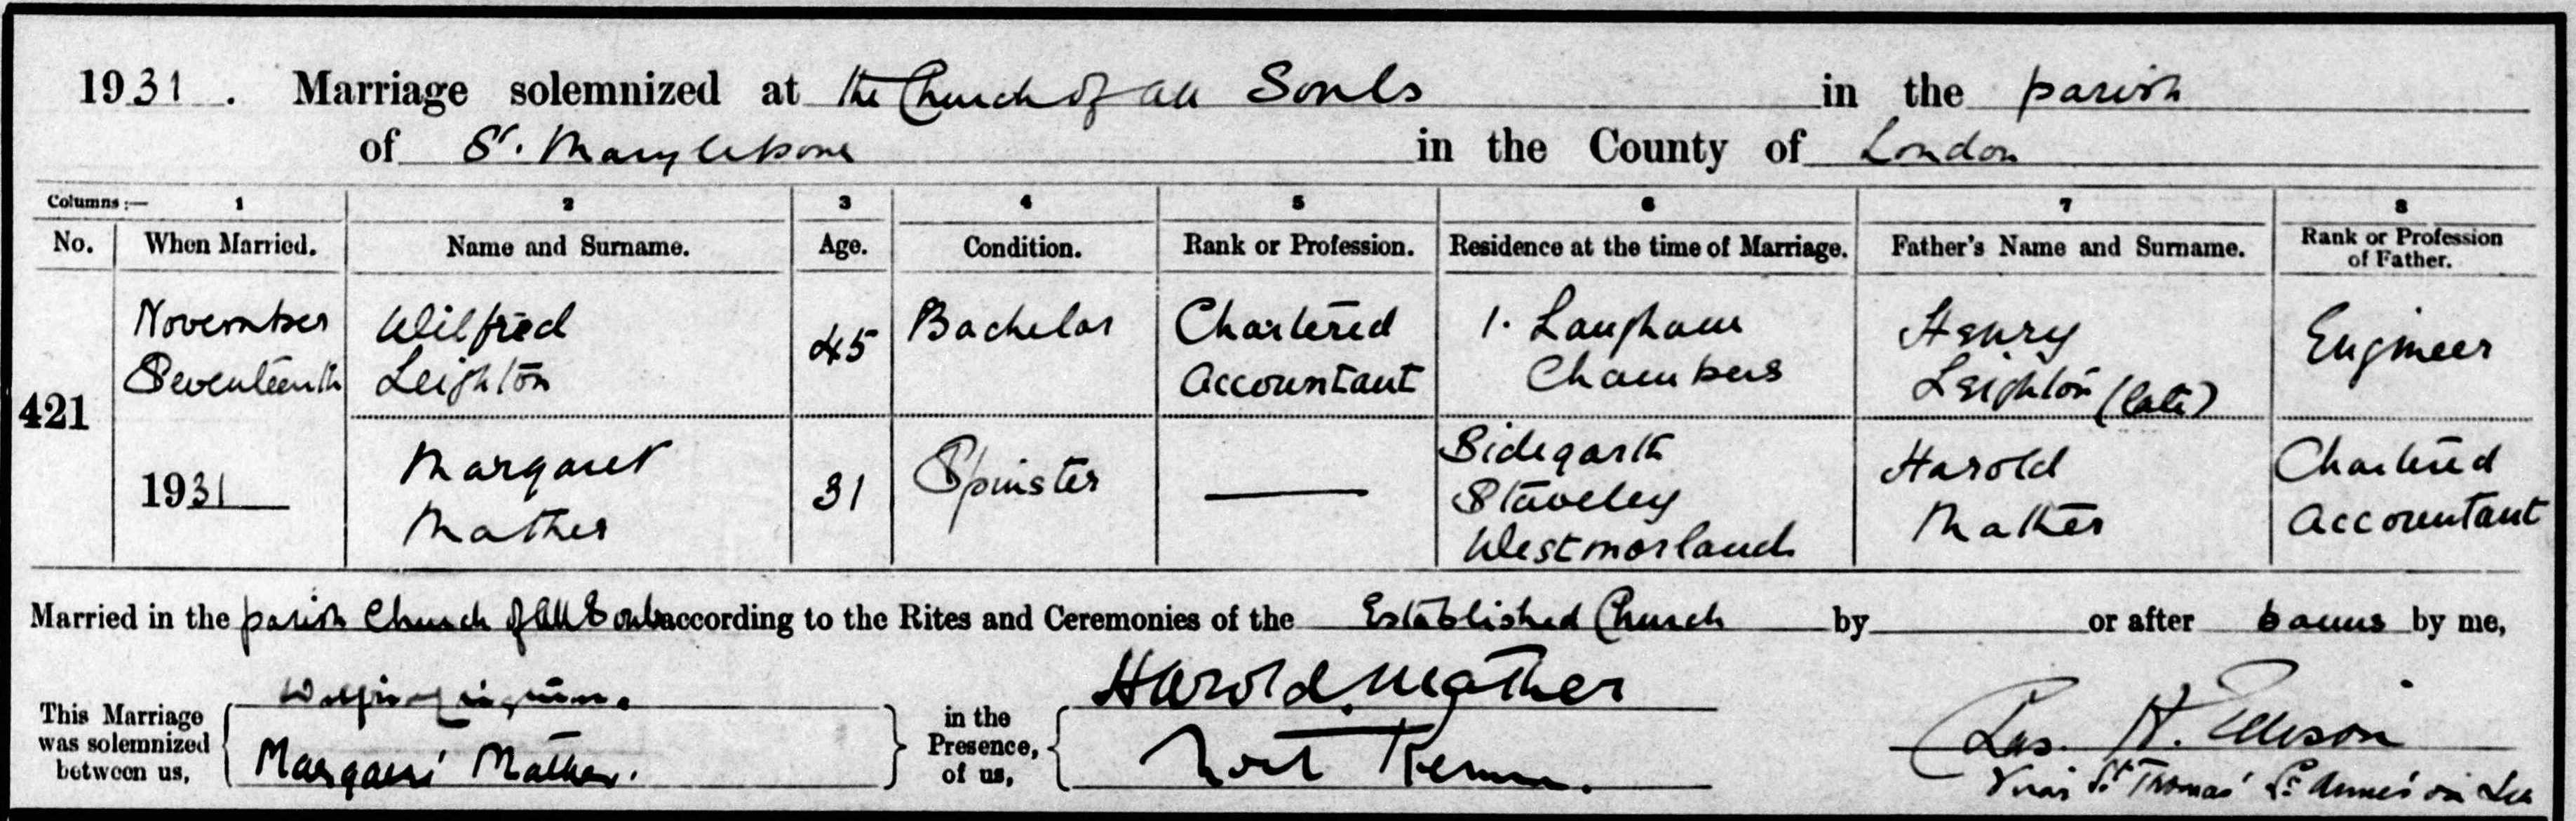 1931. Marriage solemnized at the Church of all Souls in the parish
of St. Marylebone in the County of London
Columns :— 1 2 3 4 5 6 7 8
No. When Married. Name and Surname. Age. Condition. Rank or Profession. Residence at the time of Marriage. Father's Name and Surname. Rank or Profession of Father.
421
November
Seventeenth
1931
Wilfred
Leighton
45
Bachelor
Chartered
Accountant
1. Langham
Chambers
Henry
Leighton (late)
Engineer
Margaret
Mather
31
Spinster
Sidegarth
Staveley
Westmorland
Harold
Mather
Chartered
Accountant
Married in the parish Church of All Souls according to the Rites and Ceremonies of the Established Church by or after banns by me,
This Marriage
was solemnized
between us,
Margaret Mather.
in the
Presence,
of us,
Harold Mather
H. Ellison
Vicar St Thomas' St Anne's on Sea